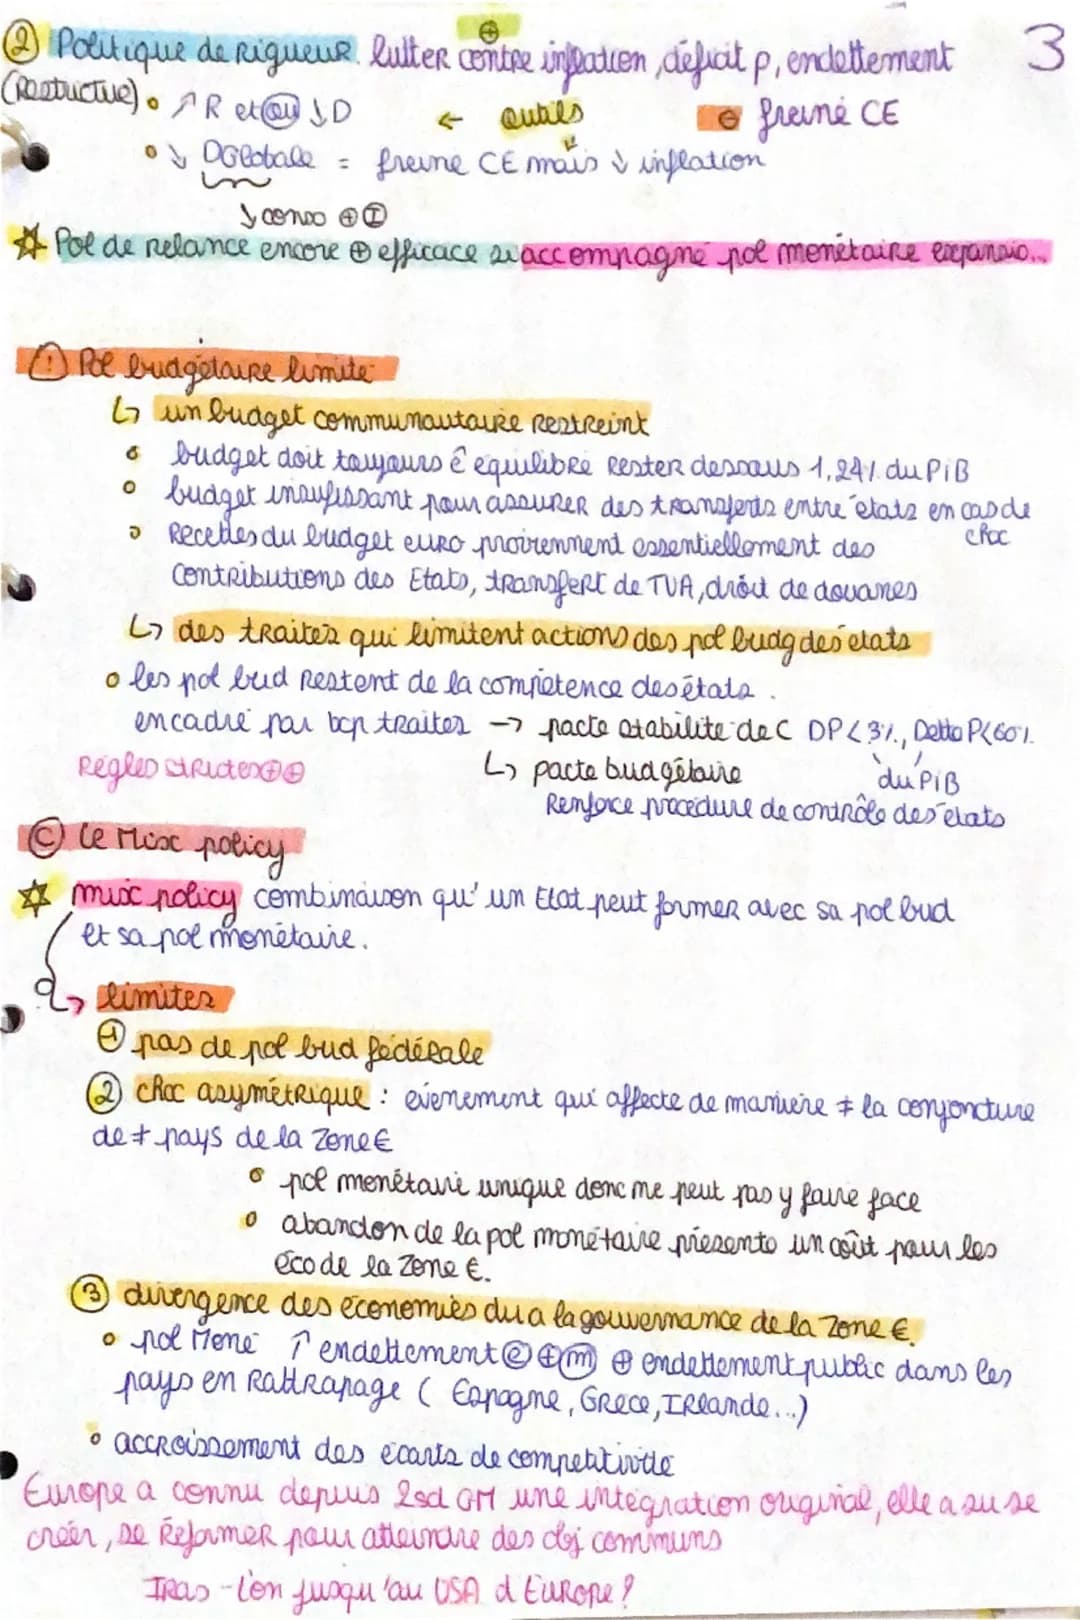 ② Politique de rigueur. lutter contre inflation, déficit p, endettement 3
⊕
(Restrictive) ∘ ↗ R et ou ↓ D ← outils ⊖ freine CE
∘ ↓ DGlobale = freine CE mais ↓ inflation
↓ conso ⊕ I
☆ Pol de relance encore ⊕ efficace si accompagné pol monétaire expansio...
! Pol budgétaire limite
↳ un budget communautaire restreint
∘ budget doit toujours ê équilibré rester dessous 1,24% du PiB
∘ budget insufissant pour assurer des transferts entre états en cas de choc
∘ Recettes du budget euro proviennent essentiellement des
contributions des Etats, transfert de TVA, droit de douanes
↳ des traités qui limitent actions des pol budg des états
∘ les pol bud restent de la compétence des états.
encadré par bcp traités → pacte stabilité de C DP<3%, Dette P<60%
Règles strictes ⊕⊕ ↳ pacte budgétaire du PiB
Renforce procédure de contrôle des états
Ⓒ le Mix policy
☆ mix policy combinaison qu'un Etat peut former avec sa pol bud
et sa pol monétaire.
↳ limites
① pas de pol bud fédérale
② choc asymétrique : évenement qui affecte de manière ≠ la conjoncture
de ≠ pays de la Zone €
∘ pol monétaire unique donc ne peut pas y faire face
∘ abandon de la pol monétaire présente un coût pour les
éco de la Zone €.
③ divergence des économies du a la gouvernance de la Zone €.
∘ pol Moné ↑ endettement ⓔ ⊕ ⓜ ⊕ endettement public dans les
pays en Rattrapage ( Espagne, Grece, Irlande...)
∘ accroissement des écarts de compétitivité
Europe a connu depuis 2sd GM une intégration original, elle a su se
créer, se Réformer pour atteindre des obj communs
Iras-t'on jusqu'au USA d'Europe ?